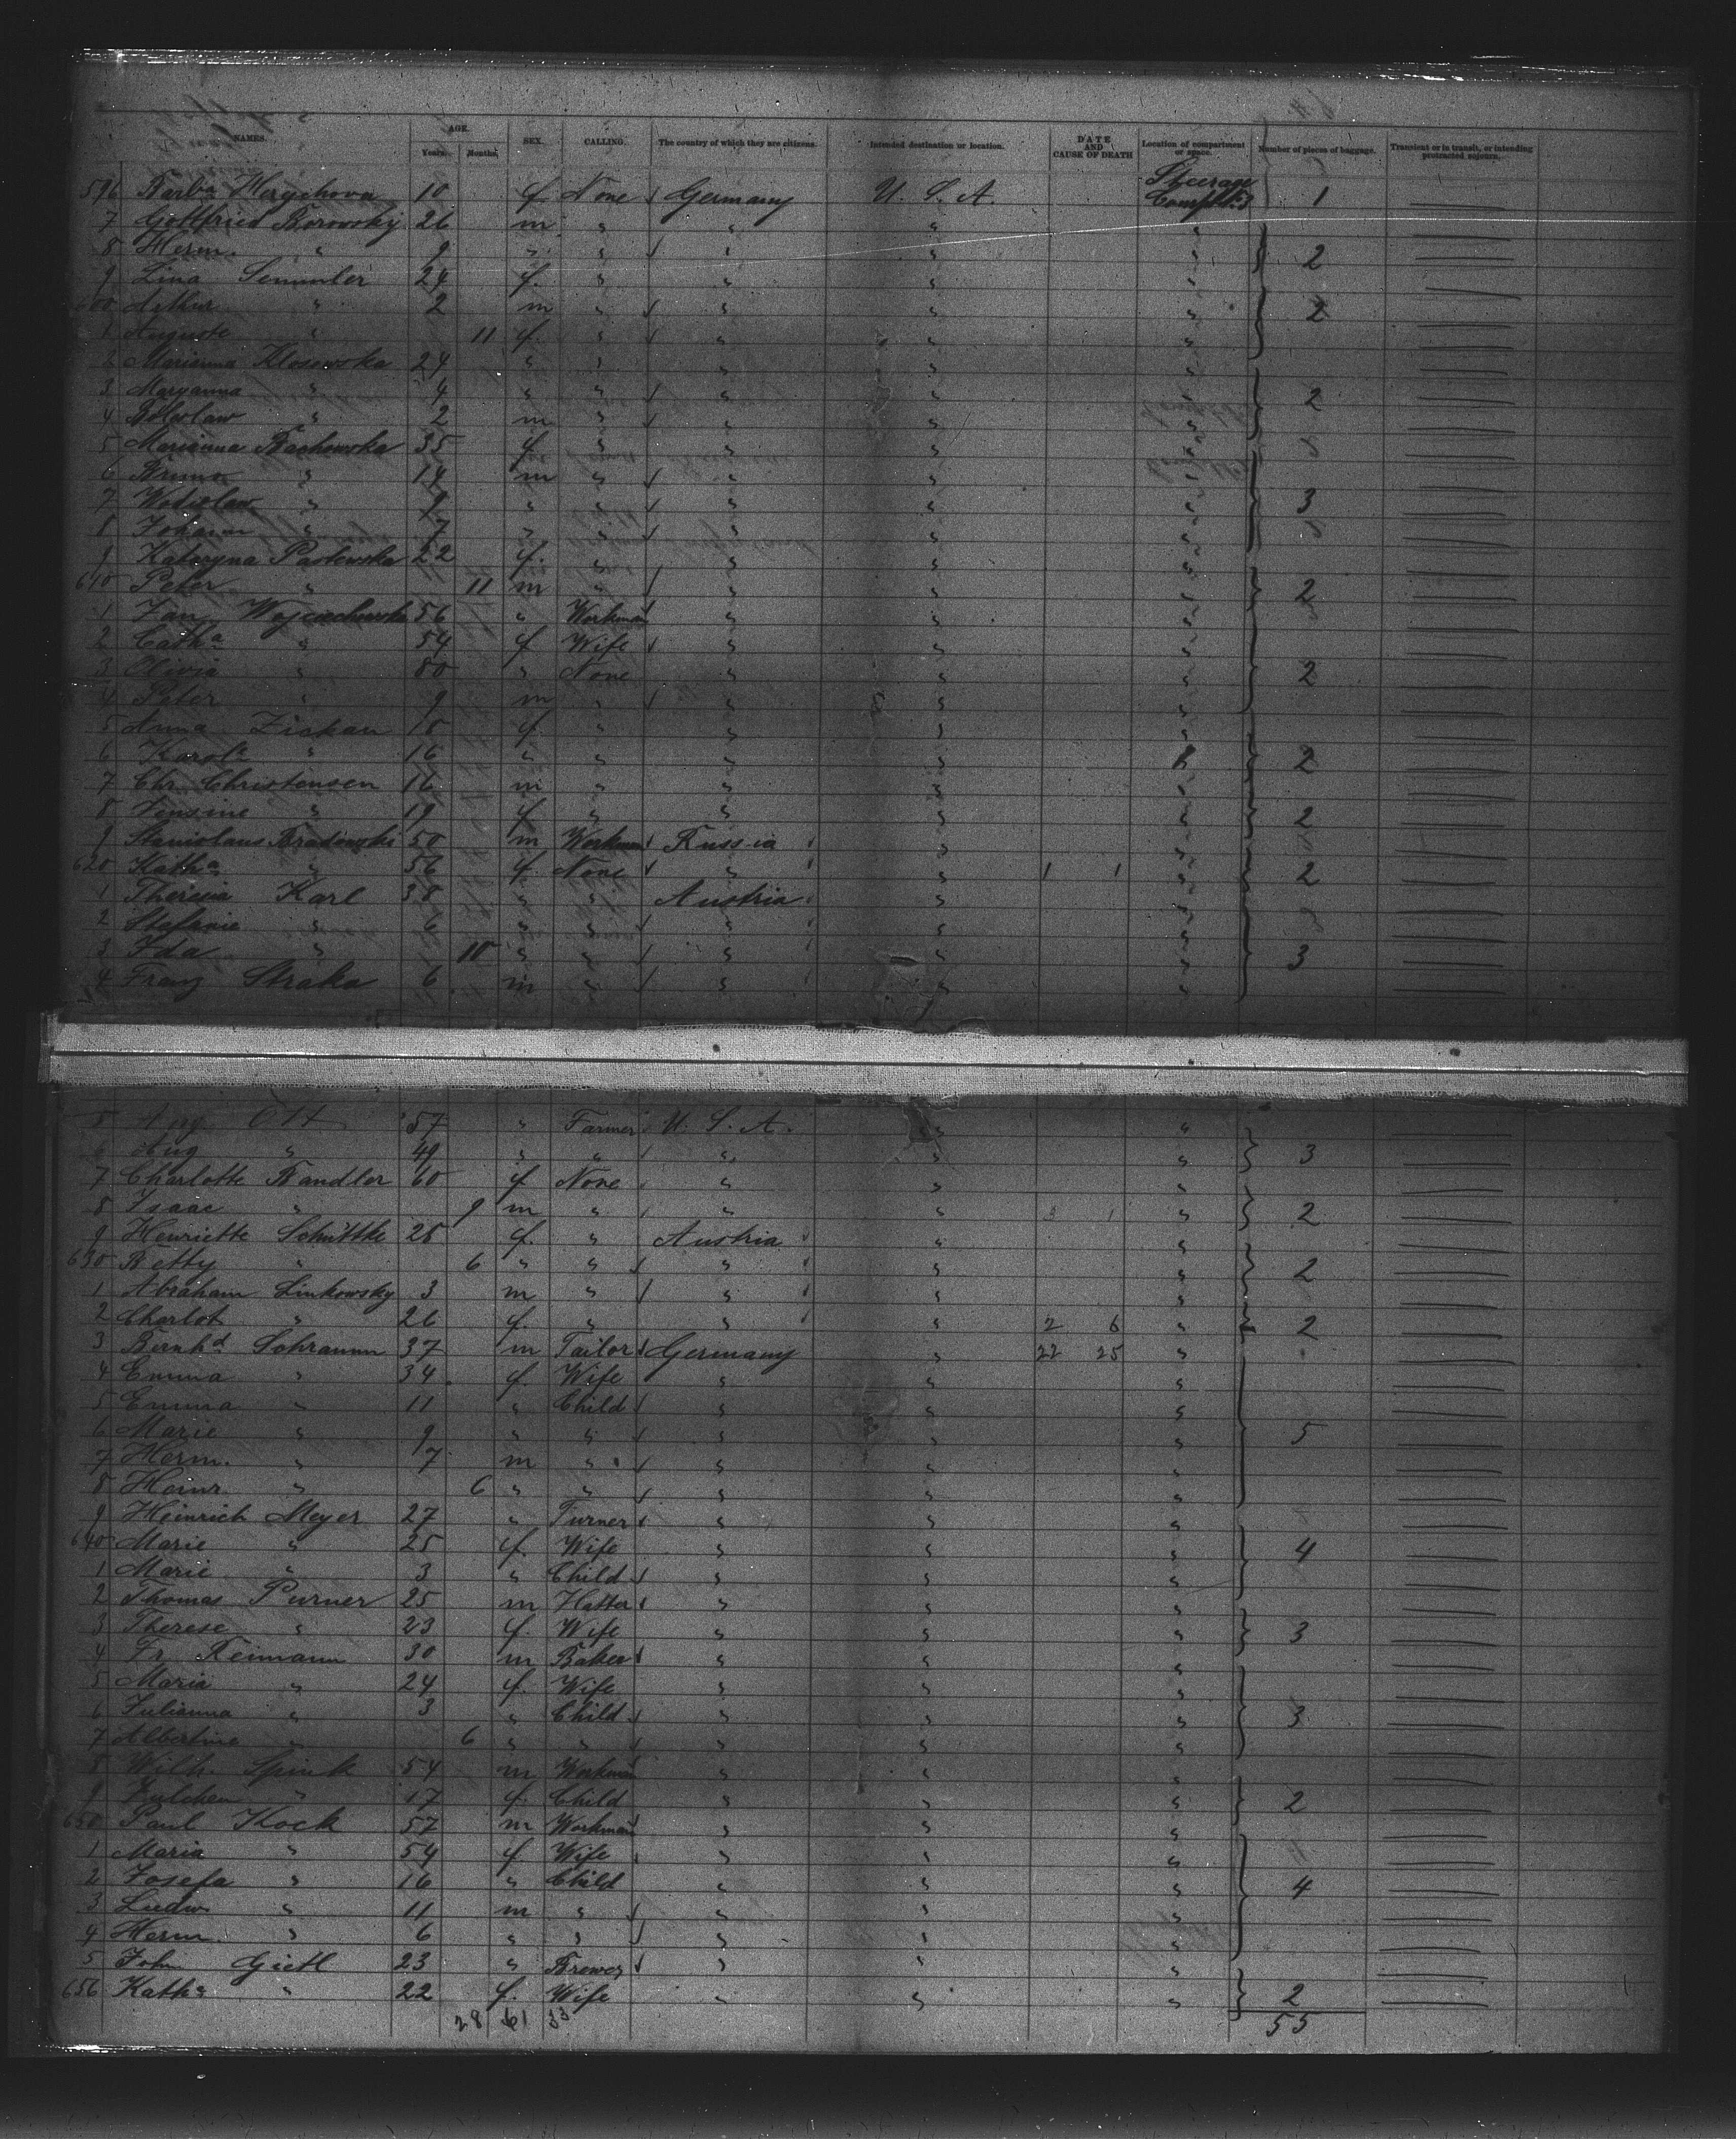 NAMES. AGE. Years. Months. SEX. CALLING. The country of which they are citizens. Intended destination or location. DATE AND CAUSE OF DEATH Location of compartment or space. Number of pieces of baggage. Transient or in transit, or intending protracted sojourn.
596 Barba Herychova 10 f. None Germany U. S. A. Steerage 1
7 Gottfried Borowsky 26 m " " " "
8 Herm. " 9 " " " " " 2
9 Lina Semmler 24 f. " " " "
600 Arthur " 2 m " " " " 2
1 Auguste " 11 f. " " " "
2 Marianna Klosowska 24 " " " " "
3 Maryanna " 4 " " " " " 2
4 Boleslaw " 2 m " " " "
5 Marianna Bachowska 35 f " " " "
6 Bruno " 14 m " " " "
7 Wadislaw " 9 " " " " " 3
8 Johann " 7 " " " " "
9 Kataryna Pastewska 22 f. " " " "
610 Peter " 11 m " " " " 2
1 Jan Wojciechowski 56 " Workman " " "
2 Catha " 54 f Wife " " "
3 Olivia " 80 " None " " " 2
4 Peter " 9 m " " " "
5 Anna Ziskau 18 f. " " " "
6 Karola " 16 " " " " 2
7 Chr. Christensen 16 m " " " "
8 Jensine " 19 f " " " " 2
9 Stanislaus Bradowski 50 m Workman Russia " "
620 Katha " 56 f. None " " 1 1 " 2
1 Theresia Karl 38 " " Austria " "
2 Stefanie " 6 " " " " "
3 Ida " 10 " " " " " 3
4 Franz Straka 6 m " " " "
5 Aug. Ott 57 " Farmer U. S. A. " "
6 Aug " 49 " " " " " 3
7 Charlotte Bandler 60 f None " " "
8 Isaac " 9 m " " " 3 1 " 2
9 Henriette Schüttke 25 f. " Austria " "
630 Betty " 6 " " " " " 2
1 Abraham Linkowsky 3 m " " " "
2 Charlot " 26 f. " " " 2 6 " 2
3 Bernhd Schramm 37 m Tailor Germany " 22 25 "
4 Emma " 34 f. Wife " " "
5 Emma " 11 " Child " " "
6 Marie " 9 " " " " " 5
7 Herm. " 7 m " " " "
8 Heinr. " 6 " " " " "
9 Heinrich Meyer 27 " Turner " " "
640 Marie " 25 f. Wife " " " 4
1 Marie " 3 " Child " " "
2 Thomas Purner 25 m Hatter " " "
3 Therese " 23 f. Wife " " " 3
4 Fr. Reimann 30 m Baker " " "
5 Maria " 24 f. Wife " " "
6 Julianna " 3 " Child " " " 3
7 Albertine " 6 " " " " "
8 Wilh. Spink 54 m Workman " " "
9 Julchen " 17 f. Child " " " 2
650 Paul Kock 57 m Workman " " "
1 Maria " 54 f Wife " " "
2 Josefa " 16 " Child " " " 4
3 Ludw. " 11 m " " " "
4 Herm. " 6 " " " " "
5 Joh. Gietl 23 " Brewer " " "
656 Katha " 22 f. Wife " " " 2
28 61 33 55